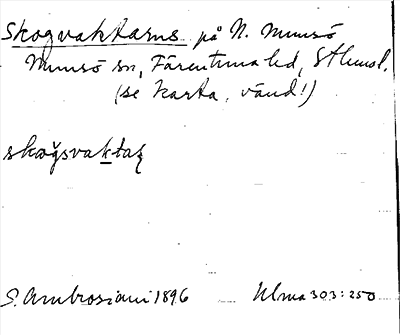 Skogvaktarns på N. Munsö
Munsö sn, Färentuna hd, Sthmsl.
(se karta, vänd!)
skoğsvaktaȥ
S. Ambrosiani 1896 Ulma 303:250